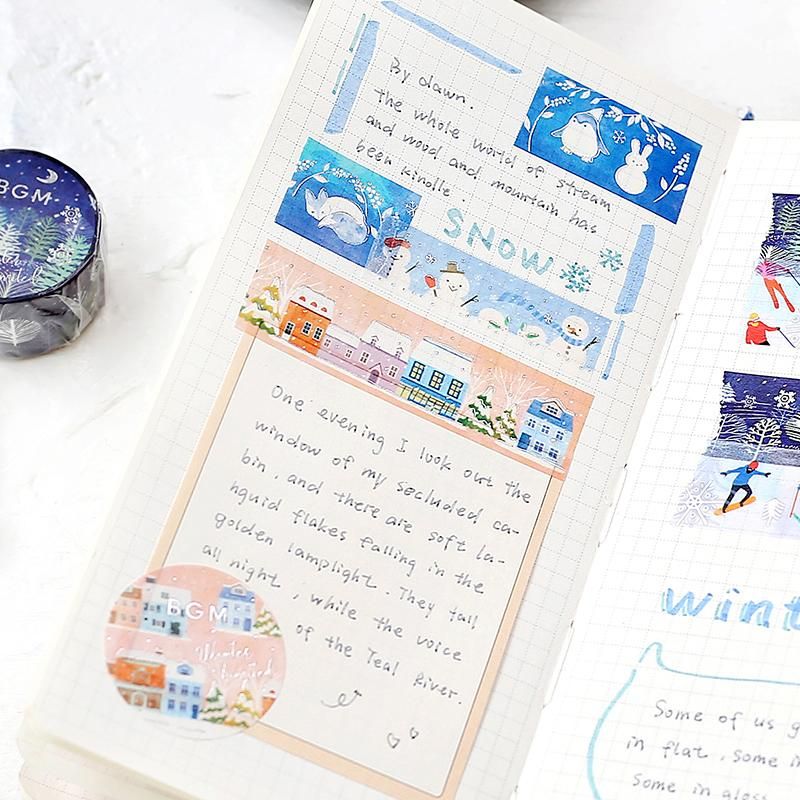 BGM
By dawn.
the whole world of stream
and wood and mountain has
been kindle.
SNOW
One evening I look out the
window of my secluded ca-
bin, and there are soft la-
nguid flakes falling in the
golden lamplight. They fall
all night, while the voice
of the Teal River.
BGM
Winter
limited
wint
Some of us g
in flat, some i
Some in gloss